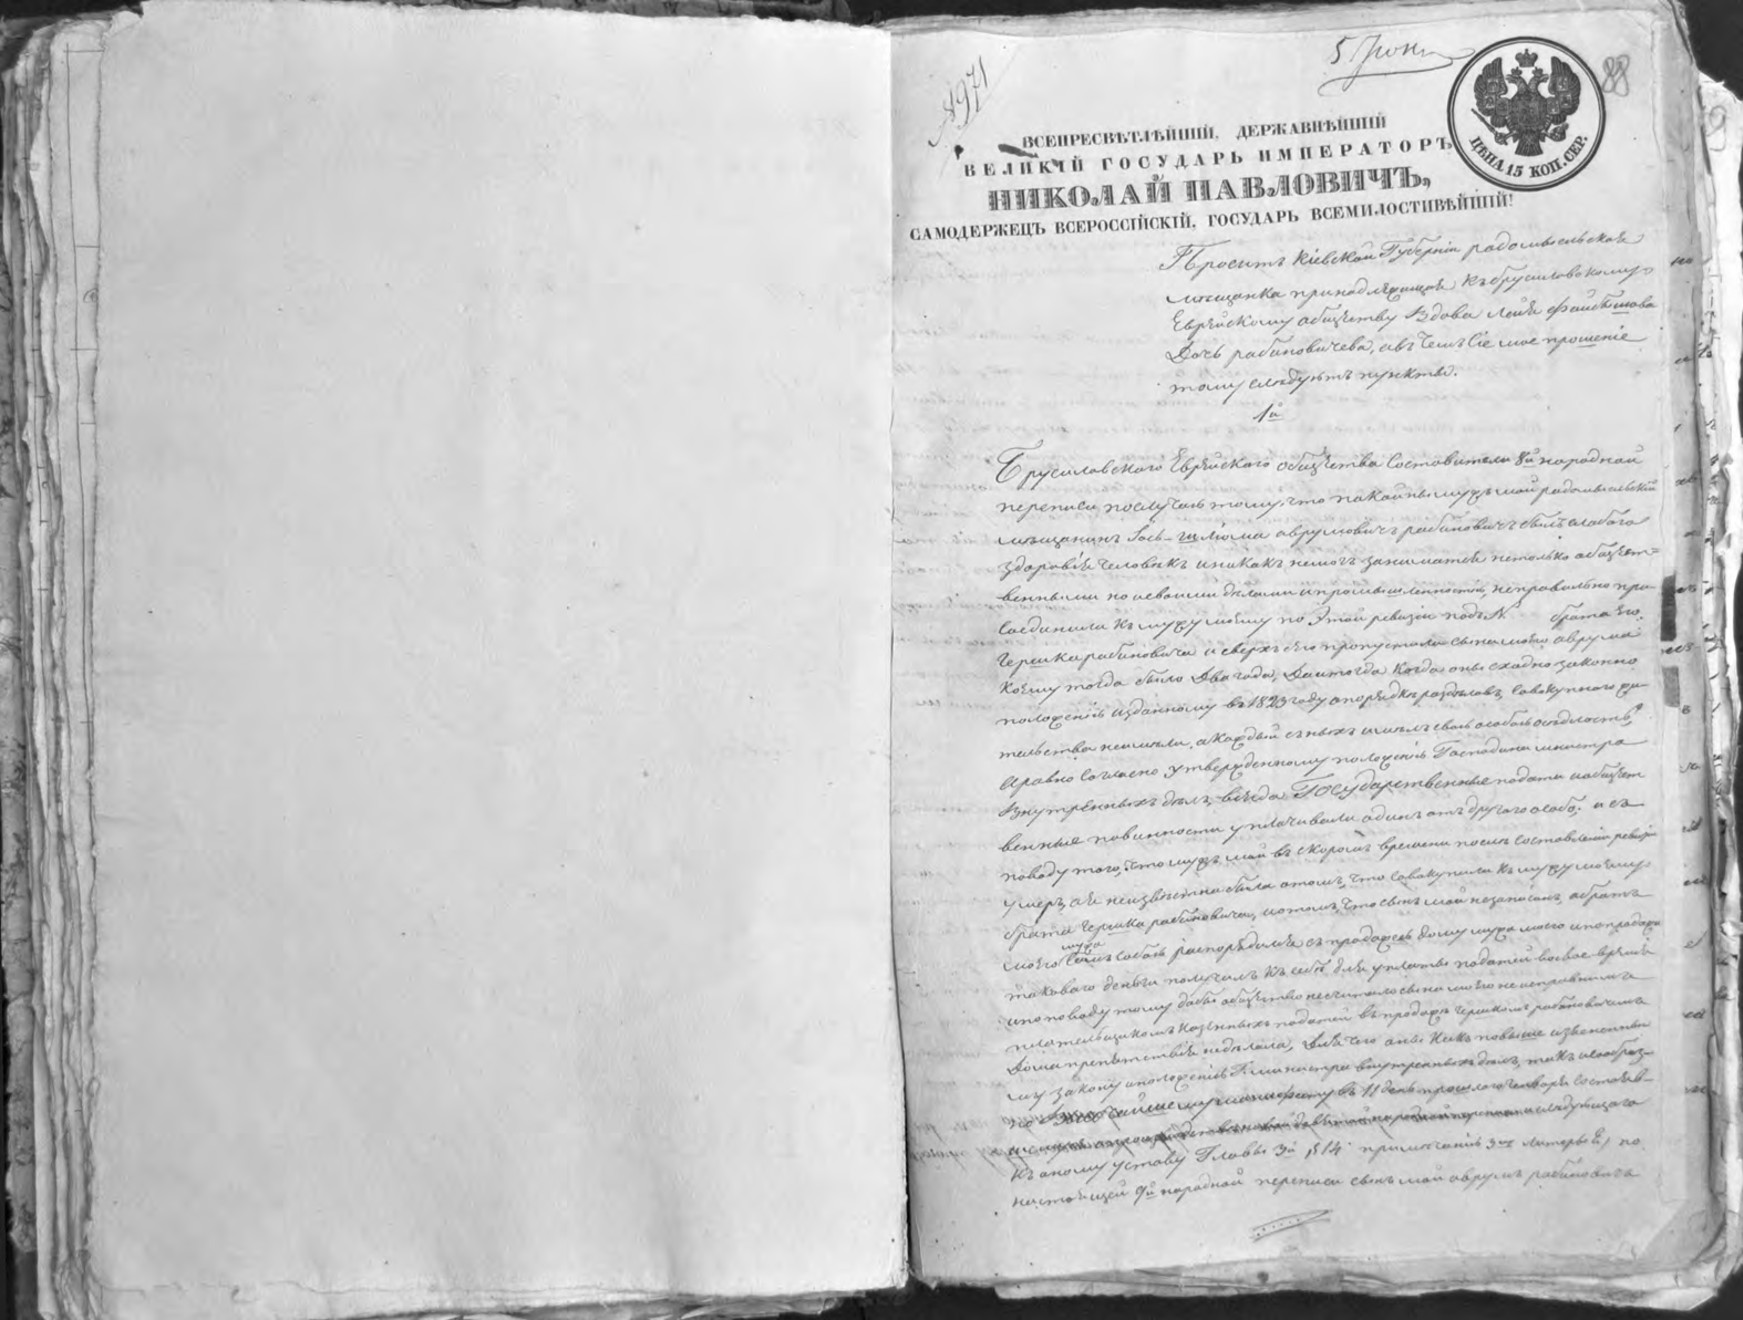 5 Іюн
№971
88
ЦѢНА 15 КОП. СЕР.
ВСЕПРЕСВѢТЛѢЙШІЙ, ДЕРЖАВНѢЙШІЙ
ВЕЛИКІЙ ГОСУДАРЬ ИМПЕРАТОРЪ
НИКОЛАЙ ПАВЛОВИЧЪ,
САМОДЕРЖЕЦЪ ВСЕРОССІЙСКІЙ, ГОСУДАРЬ ВСЕМИЛОСТИВѢЙШІЙ!
Проситъ Кіевской Губерніи радомысльская
мѣщанка принадлежащая къ брусиловскому
Еврейскому обществу Вдова Лейя Файбишова
Дочь рабиновичева, а въ чемъ Сіе мое прошеніе
тому слѣдуютъ пункты.
1й
Брусиловского Еврейского общества Составители 8й народной
переписи послучаю тому, что покойны мужъ мой радомысльскій
мѣщанинъ Іось-Шлiома аврумовичъ рабиновичъ былъ слабого
здоровія человѣкъ иникакъ немогъ заниматся нетолько общест=
венными но исвоими дѣлами ипромышленностію, неправильно при
соединили къ мужу моему по Этой ревизіи подъ № брата Его
Гершка рабиновича и сверхъ сего пропустили сына моего аврума
коему тогда было Два года, Даитогда когда оны сходно законно
положенію изданному въ 1823 году опорядкѣ раздѣловъ Совокупного жи
тельства неимѣли, акаждый сныхъ имѣлъ свою особою осѣдлость,
Аравно Согласно утвержденному положенію Господина министра
Внутренныхъ дѣлъ, всегда Государственные подати иобщест
венные повинности уплачивали одинъ отъ другого особо, и съ
поводу того, что мужъ мой въ скоромъ времени после Составленіи ревизіи
умеръ, ая неизвѣстна была отомъ, что Совокупили къ мужу моему
брата Гершка рабиновича, иотомъ, что сынъ мой незаписанъ, абратъ
мужа
моего Самъ Собою распорядился съ продажею Дому мужа моего ипопродажи
таковаго деньги получилъ къ себѣ для уплаты податей восвое время
ипоповоду тому дабы общество несчитало сына моего неисправнымъ
плательщикомъ казенныхъ податей въ продажѣ Гершкомъ рабиновичемъ
Дома препятствія неделала, Для чего оны какъ повыше изъясненны
му закону иположенію Г. министра внутренныхъ дѣлъ, такъ исообраз-
но Высочайшему манифесту въ 11 день прошлого Генваря Состояв-
къ оному уставу Главы 3й § 14 примечанію 3му литеры Е, по
настоящей 9й народной переписи сынъ мой аврумъ рабиновичъ